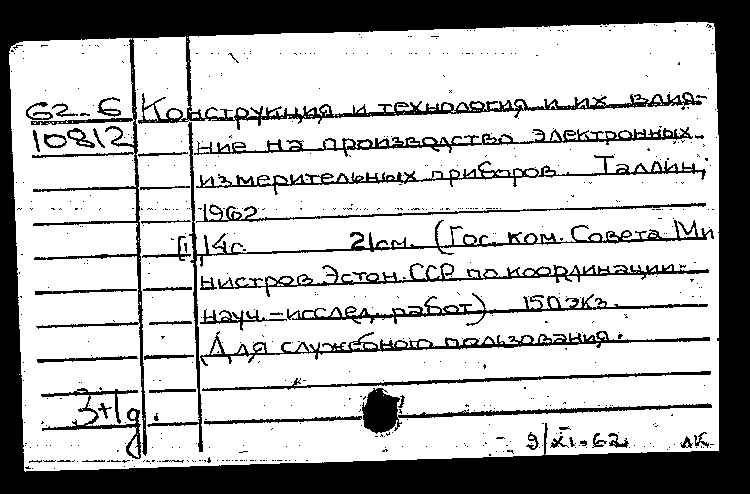 62-6 Конструкция и технология и их влия-
10812 ние на производство электронных
измерительных приборов. Таллин,
1962.
[1], 14с. 21см. (Гос. ком. Совета Ми
нистров Эстон. ССР по координации
науч.-исслед. работ) 150 экз.
Для служебного пользования.
3+1д.
9/XI-62 ЛК